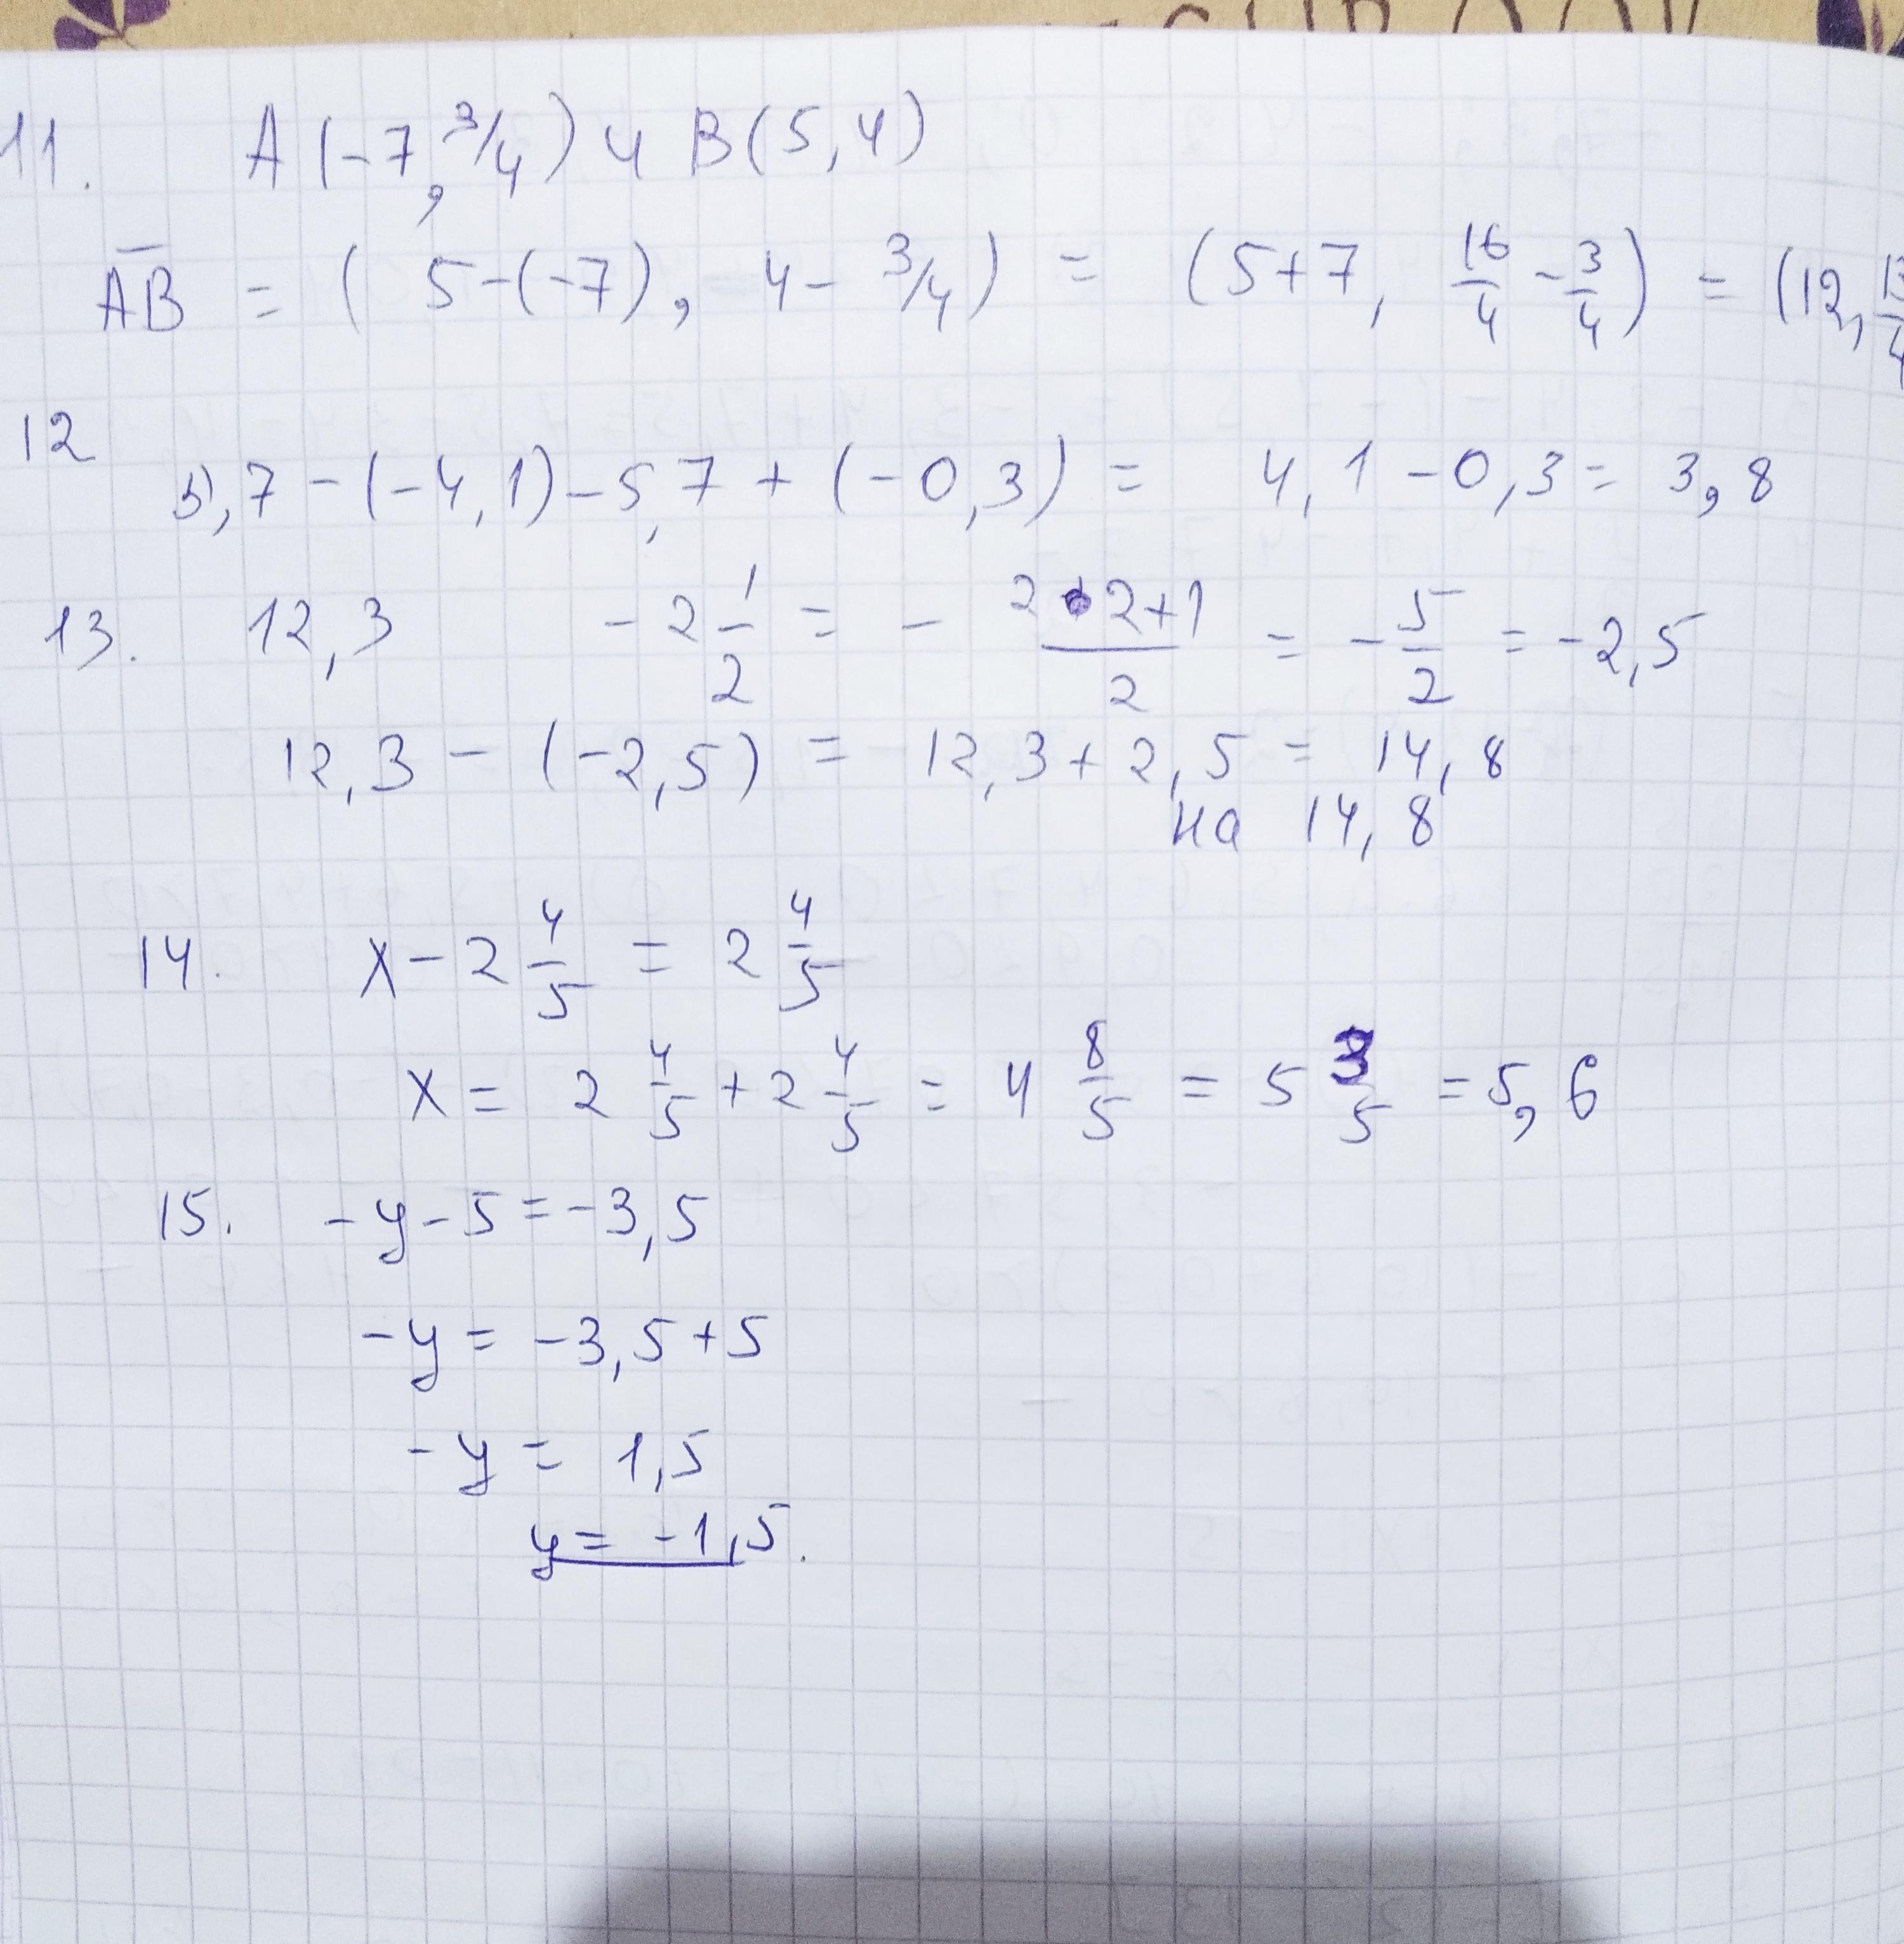 11. A(-7, 3/4) и B(5, 4)
AB = (5-(-7), 4- 3/4) = (5+7, 16/4 - 3/4) = (12, 13/4
12
5,7 - (-4,1) - 5,7 + (-0,3) = 4,1 - 0,3 = 3,8
13. 12,3 -2 1/2 = - 2•2+1/2 = - 5/2 = -2,5
12,3 - (-2,5) = 12,3 + 2,5 = 14,8
на 14,8
14. x - 2 4/5 = 2 4/5
x = 2 4/5 + 2 4/5 = 4 8/5 = 5 3/5 = 5,6
15. -y - 5 = -3,5
-y = -3,5 + 5
-y = 1,5
y = -1,5.